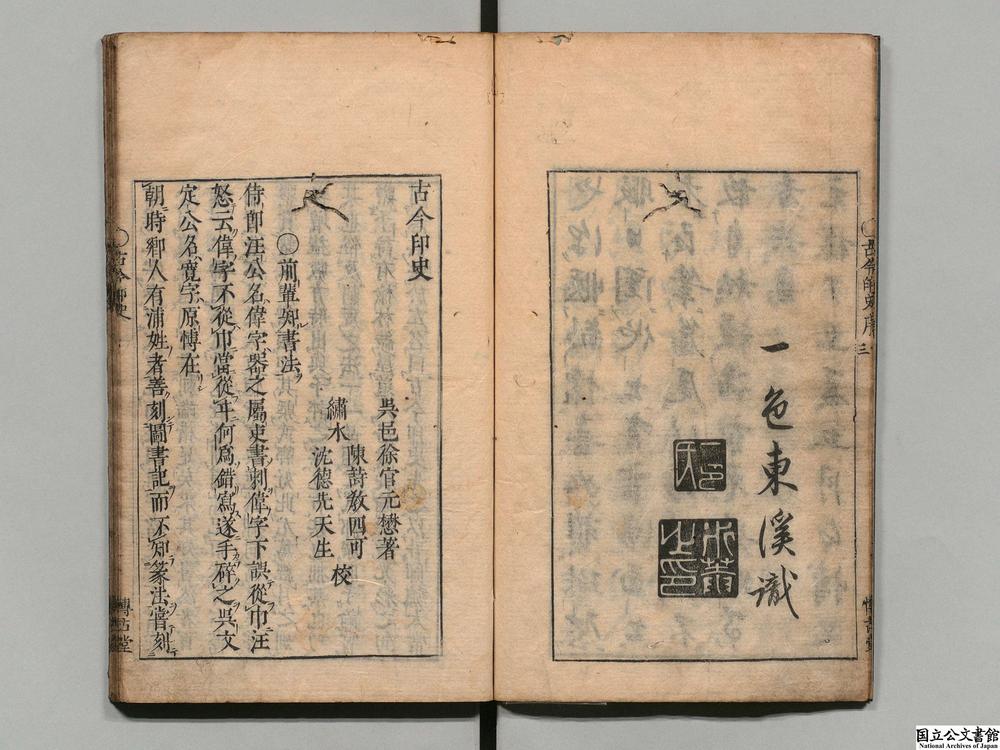 古今印史序 三
一色東溪識
古今印史
吳邑徐官元懋著
陳詩教四可
繡水
沈德先天生
校
〇前輩知書法
侍郎汪公名偉字器之屬吏書劄偉字下誤從巾汪
怒云偉字不從巾當從㐄何爲錯寫遂手碎之吳文
定公名寬字原愽在
朝時鄉人有浦姓者善刻圖書記而不知篆法嘗刻
〇古今印史
博古堂
国立公文書館
National Archives of Japan